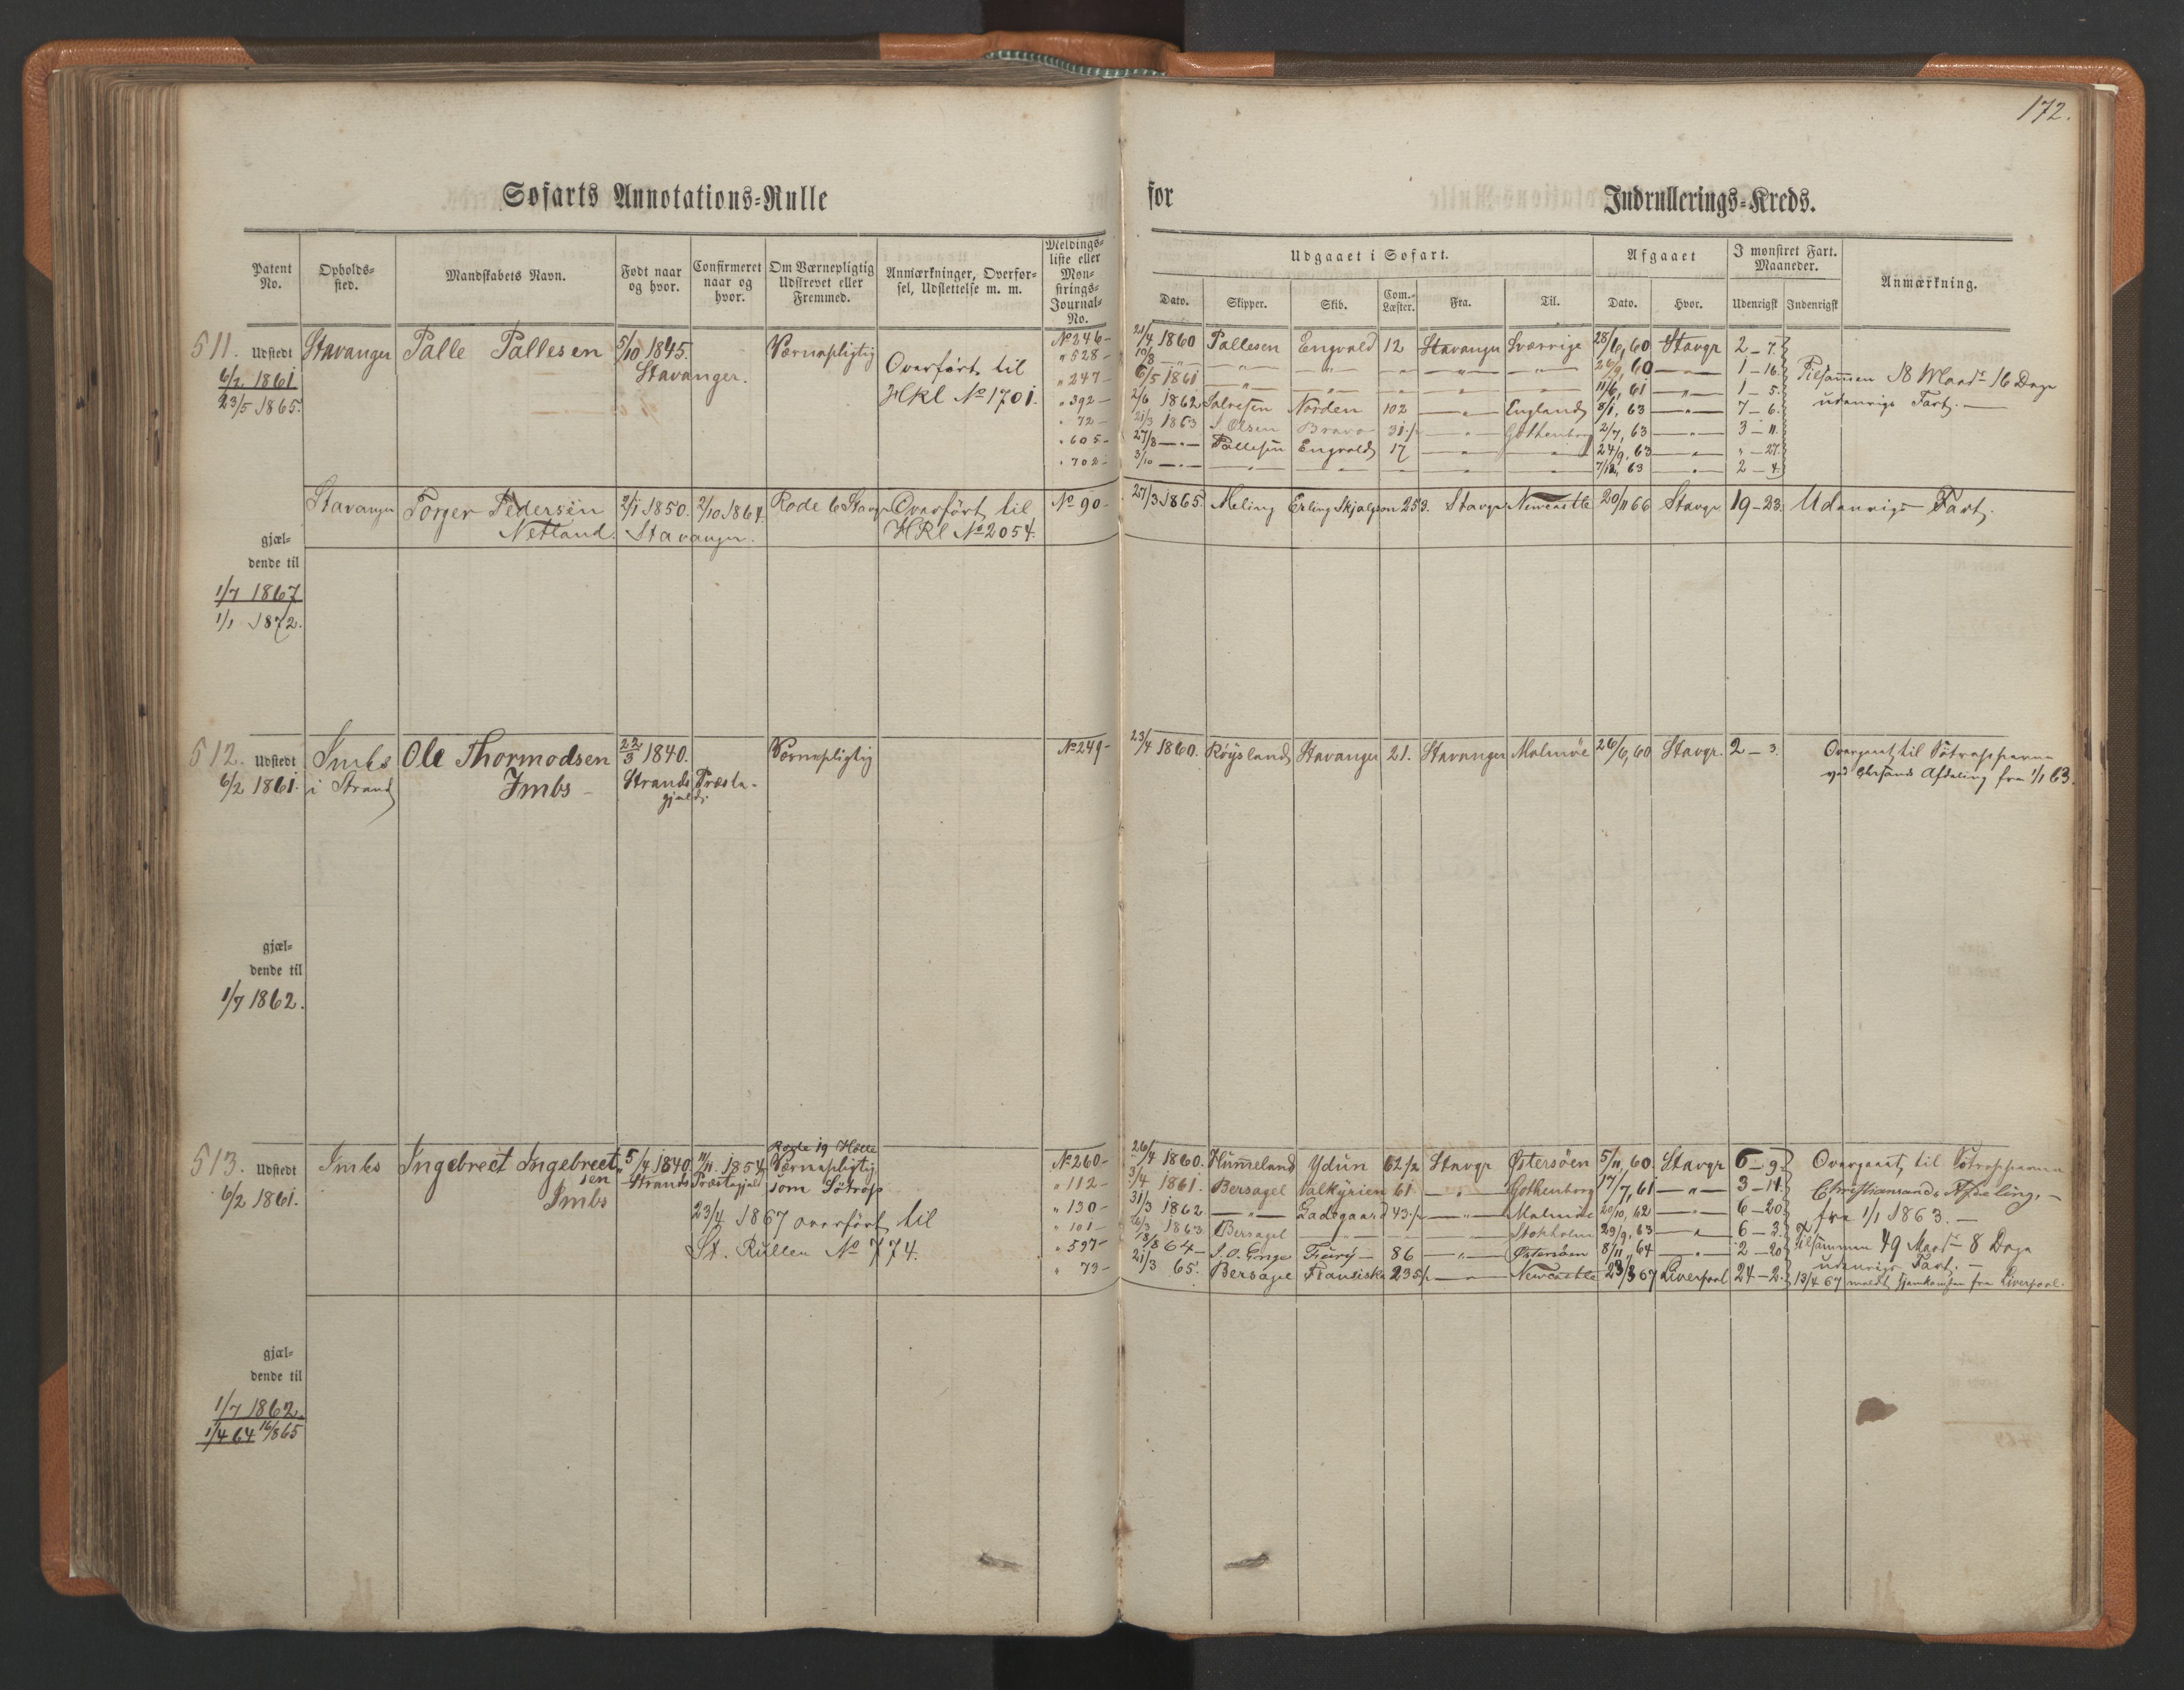 172.
Søfarts Annotations-Rulle for Indrullerings-Kreds.
Patent No. Opholds-sted. Mandskabets Navn. Født naar og hvor. Confirmeret naar og hvor. Om Værnepligtig Udskrevet eller Fremmed. Anmærkninger, Overførsel, Udslettelse m. m. Meldings-liste eller Mønstrings-Journal-No.
Udgaaet i Søfart. Afgaaet I mønstret Fart. Maaneder. Anmærkning.
Dato. Skipper. Skib. Com.-Læster. Fra. Til. Dato. Hvor. Udenrigsk Indenrigsk
511. Udstedt 6/2 1861 23/5 1865.
Stavanger Palle Pallesen 5/10 1845. Stavanger. Værnepligtig Overført til Hkl No 1701.
No 246 - 21/4 1860 Pallesen Engvald 12 Stavanger Sverrige 28/6, 60 Stavgr 2 - 7.
" 528 - 10/8 — " — — " — — " — " — " — — " — 26/9, 60 — " — 1 - 16.
" 247 - 6/5 1861 " " " " " 11/6, 61 — " — 1 - 5.
" 392 - 2/6 1862 Salvesen Norden 102 — " — England 8/1, 63 — " — 7 - 6.
" 72 - 21/3 1863 S. Olsen Bravo 31 — " — Gothenborg 2/7, 63 — " — 3 - 11.
" 605 - 27/8 — " — Pallesen Engvald 17 — " — — " — 24/9, 63 — " — " - 27.
" 702 - 3/10 — " — — " — — " — " — " — — " — 7/12, 63 — " — 2 - 4.
Tilsammen 18 Maadr 16 Dage
udenrigs Fart. —
Stavanger Torger Pedersen Netland. 2/1 1850. Stavanger. 2/10 1864. Rode 6 Stavgr Overført til HRl No 2054.
No 90 - 27/3 1865. Meling Erling Skjalgson 253. Stavgr Newcastle 20/11 66 Stavgr 19 - 23. Udenrigs Fart.
gjæl-
dende til
1/7 1867
1/1 1872.
512. Udstedt 6/2 1861.
Imbs i Strand Ole Thormodsen Imbs - 22/3 1840. Strands Præstegjæld. Værnepligtig
No 249 - 23/4 1860. Røysland Stavanger 21. Stavanger Malmöe 26/6, 60 Stavgr. 2 - 3.
Overgaaet til Søtropperne
ved Chrsands Afdeling fra 1/1 63.
gjæl-
dende til
1/7 1862.
513. Udstedt 6/2 1861.
Imbs Ingebrect Ingebrectsen Imbs 5/4 1840. 11/11. 1854 Strands Præstegjæld
Rode 19 Holle
Værnepligtig
som Søtrop
23/4 1867 overført til
St. Rullen No 774.
No 260 - 26/4 1860. Hummeland Ydun 62 1/2 Stavgr Østersøen 5/11, 60 Stavgr 6 - 9.
" 112 - 3/4 1861. Bersagel Valkyrien 61 — " — Gothenborg 17/7, 61 — " — 3 - 14.
" 130 - 31/3 1862 — " — Ladegaard 43 — " — Malmöe 20/10, 62 — " — 6 - 20
" 101 - 26/3 1863 Bersagel — — — Stokholm 29/9, 63 — " — 6 - 3.
" 597 - 18/8 64 - S. O. Enge Fury — 86 — " — Østersøen 8/11, 64 — " — 2 - 20
" 73 - 21/3 65. Bersagel Fransiska 235 — " — Newcastle 23/3 67 Liverpool 24 - 2.
Overgaaet til Søtropperne
Christiansands Afdeling. —
fra 1/1 1863. —
Tilsammen 49 Maadr 8 Dage
udenrigs Fart. —
13/4 67 meldt hjemkommen fra Liverpool.
gjæl-
dende til
1/7 1862.
1/4 64 16/8 65